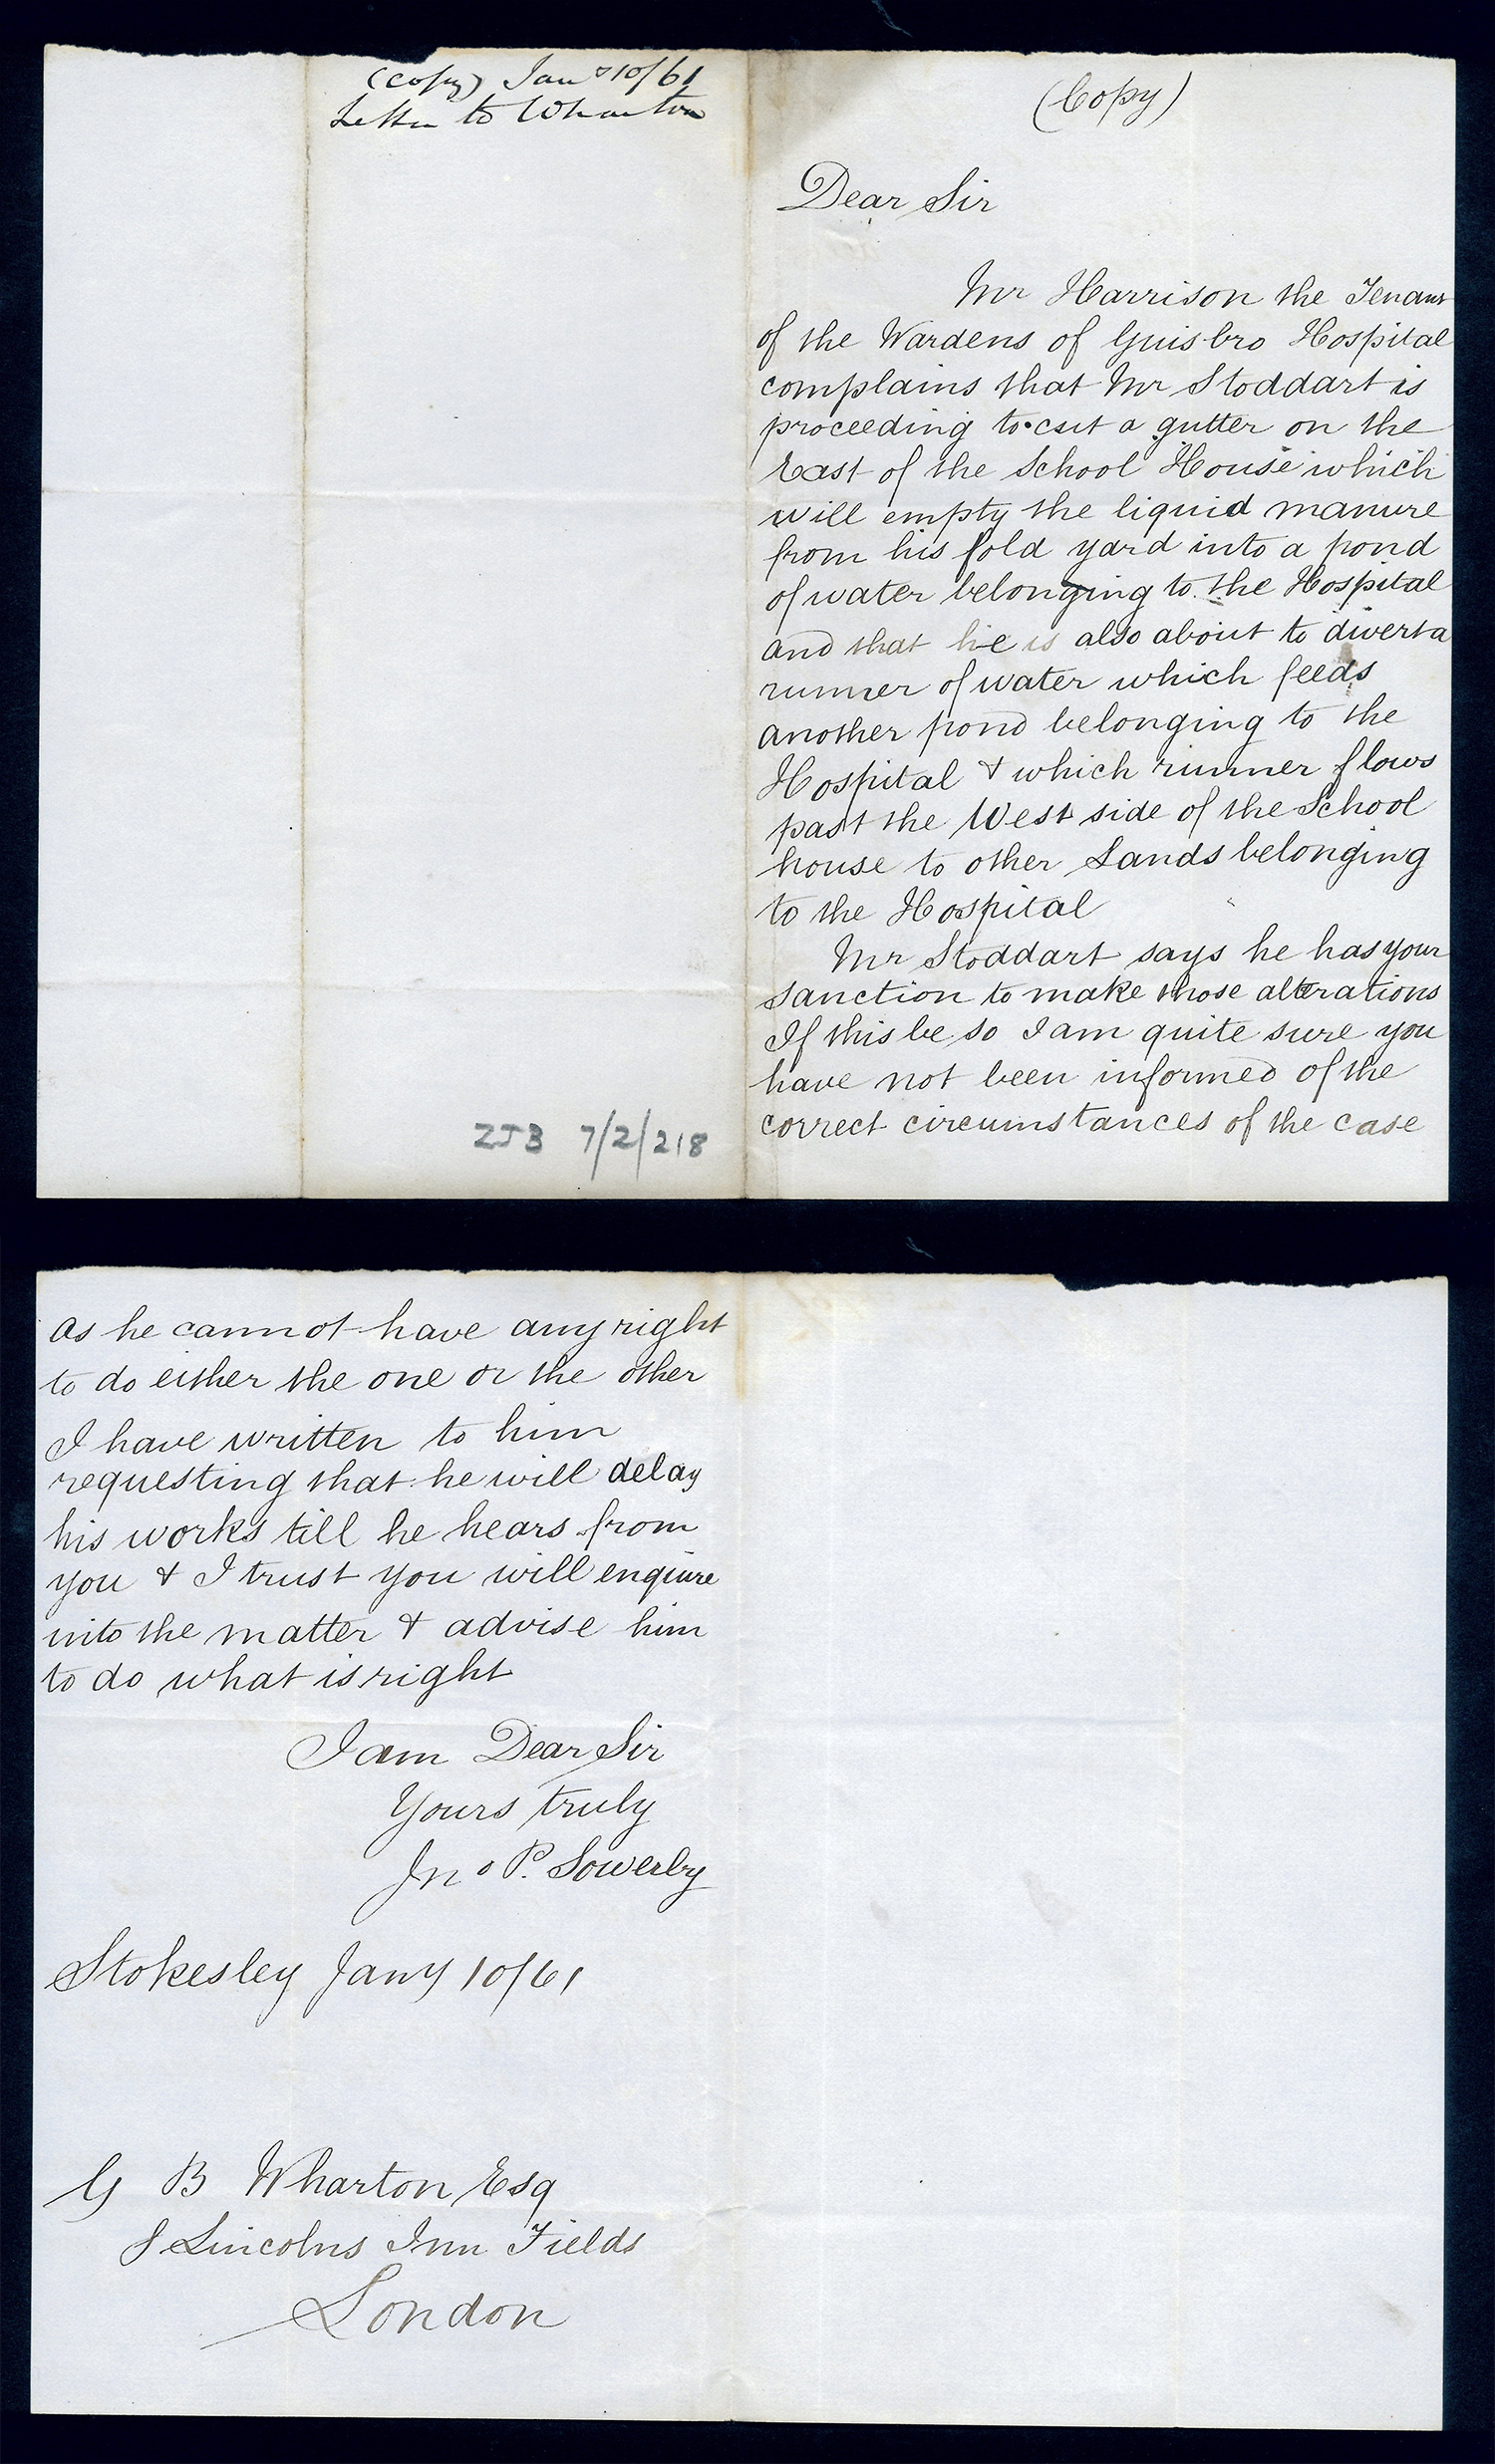 (Copy) Jany 10/61
Letter to Wharton
ZJB 7/2/218
(Copy)
Dear Sir
Mr Harrison the Tenant
of the Wardens of Guisbro Hospital
complains that Mr Stoddart is
proceeding to cut a gutter on the
East of the School House which
will empty the liquid manure
from his fold yard into a pond
of water belonging to the Hospital
and that he is also about to divert a
runner of water which feeds
another pond belonging to the
Hospital & which runner flows
past the West side of the School
house to other Lands belonging
to the Hospital
Mr Stoddart says he has your
sanction to make those alterations
If this be so I am quite sure you
have not been informed of the
correct circumstances of the case
as he cannot have any right
to do either the one or the other
I have written to him
requesting that he will delay
his works till he hears from
you & I trust you will enquire
into the matter & advise him
to do what is right
I am Dear Sir
Yours truly
Jno P. Sowerby
Stokesley Jany 10/61
G B Wharton Esq
8 Lincolns Inn Fields
London